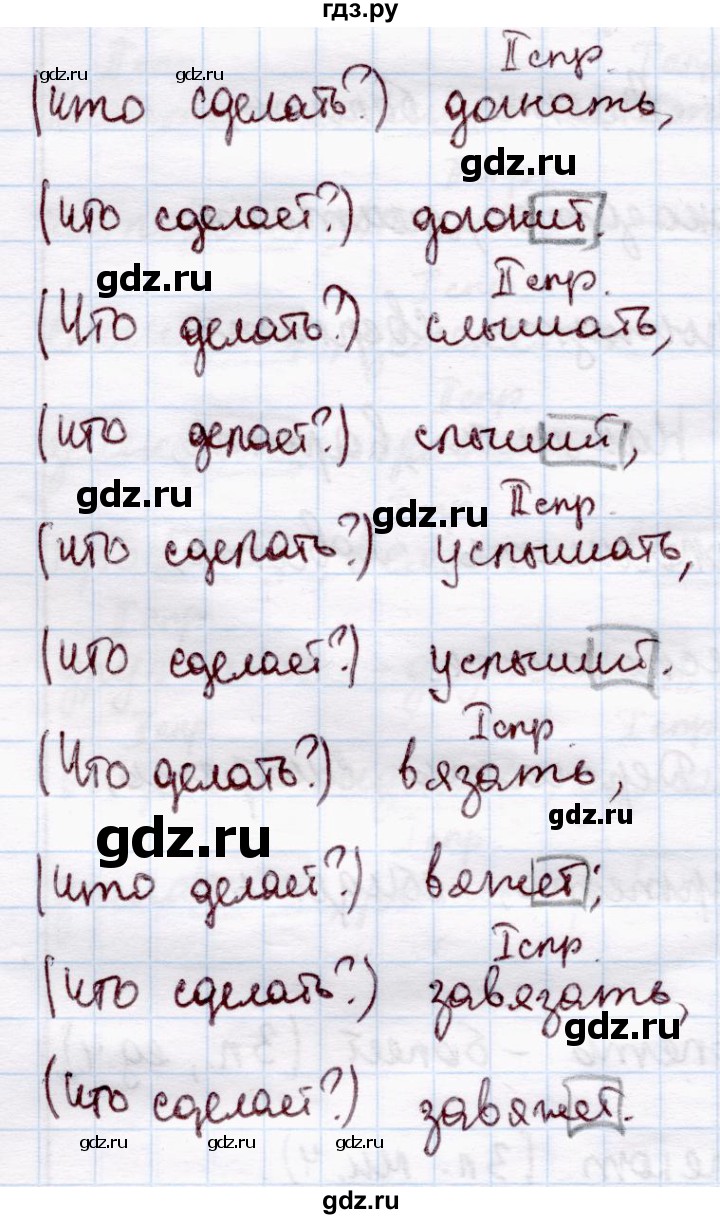 гдз.ру
II спр.
gdz.ru gdz.ru
(что сделать?) догнать,
gdz.ru
(что сделает?) догонит.
gdz.ru
II спр.
(Что делать?) слышать,
(что делает?) слышит,
gdz.ru
gdz.ru
II спр.
(что сделать?) услышать,
(что сделает?) услышит.
I спр.
(Что делать?) вязать,
gdz.ru
gdz.ru
(что делает?) вяжет;
I спр.
(что сделать?) завязать,
gdz.ru
(что сделает?) завяжет.
gdz.ru gdz.ru gdz.ru
gdz.ru